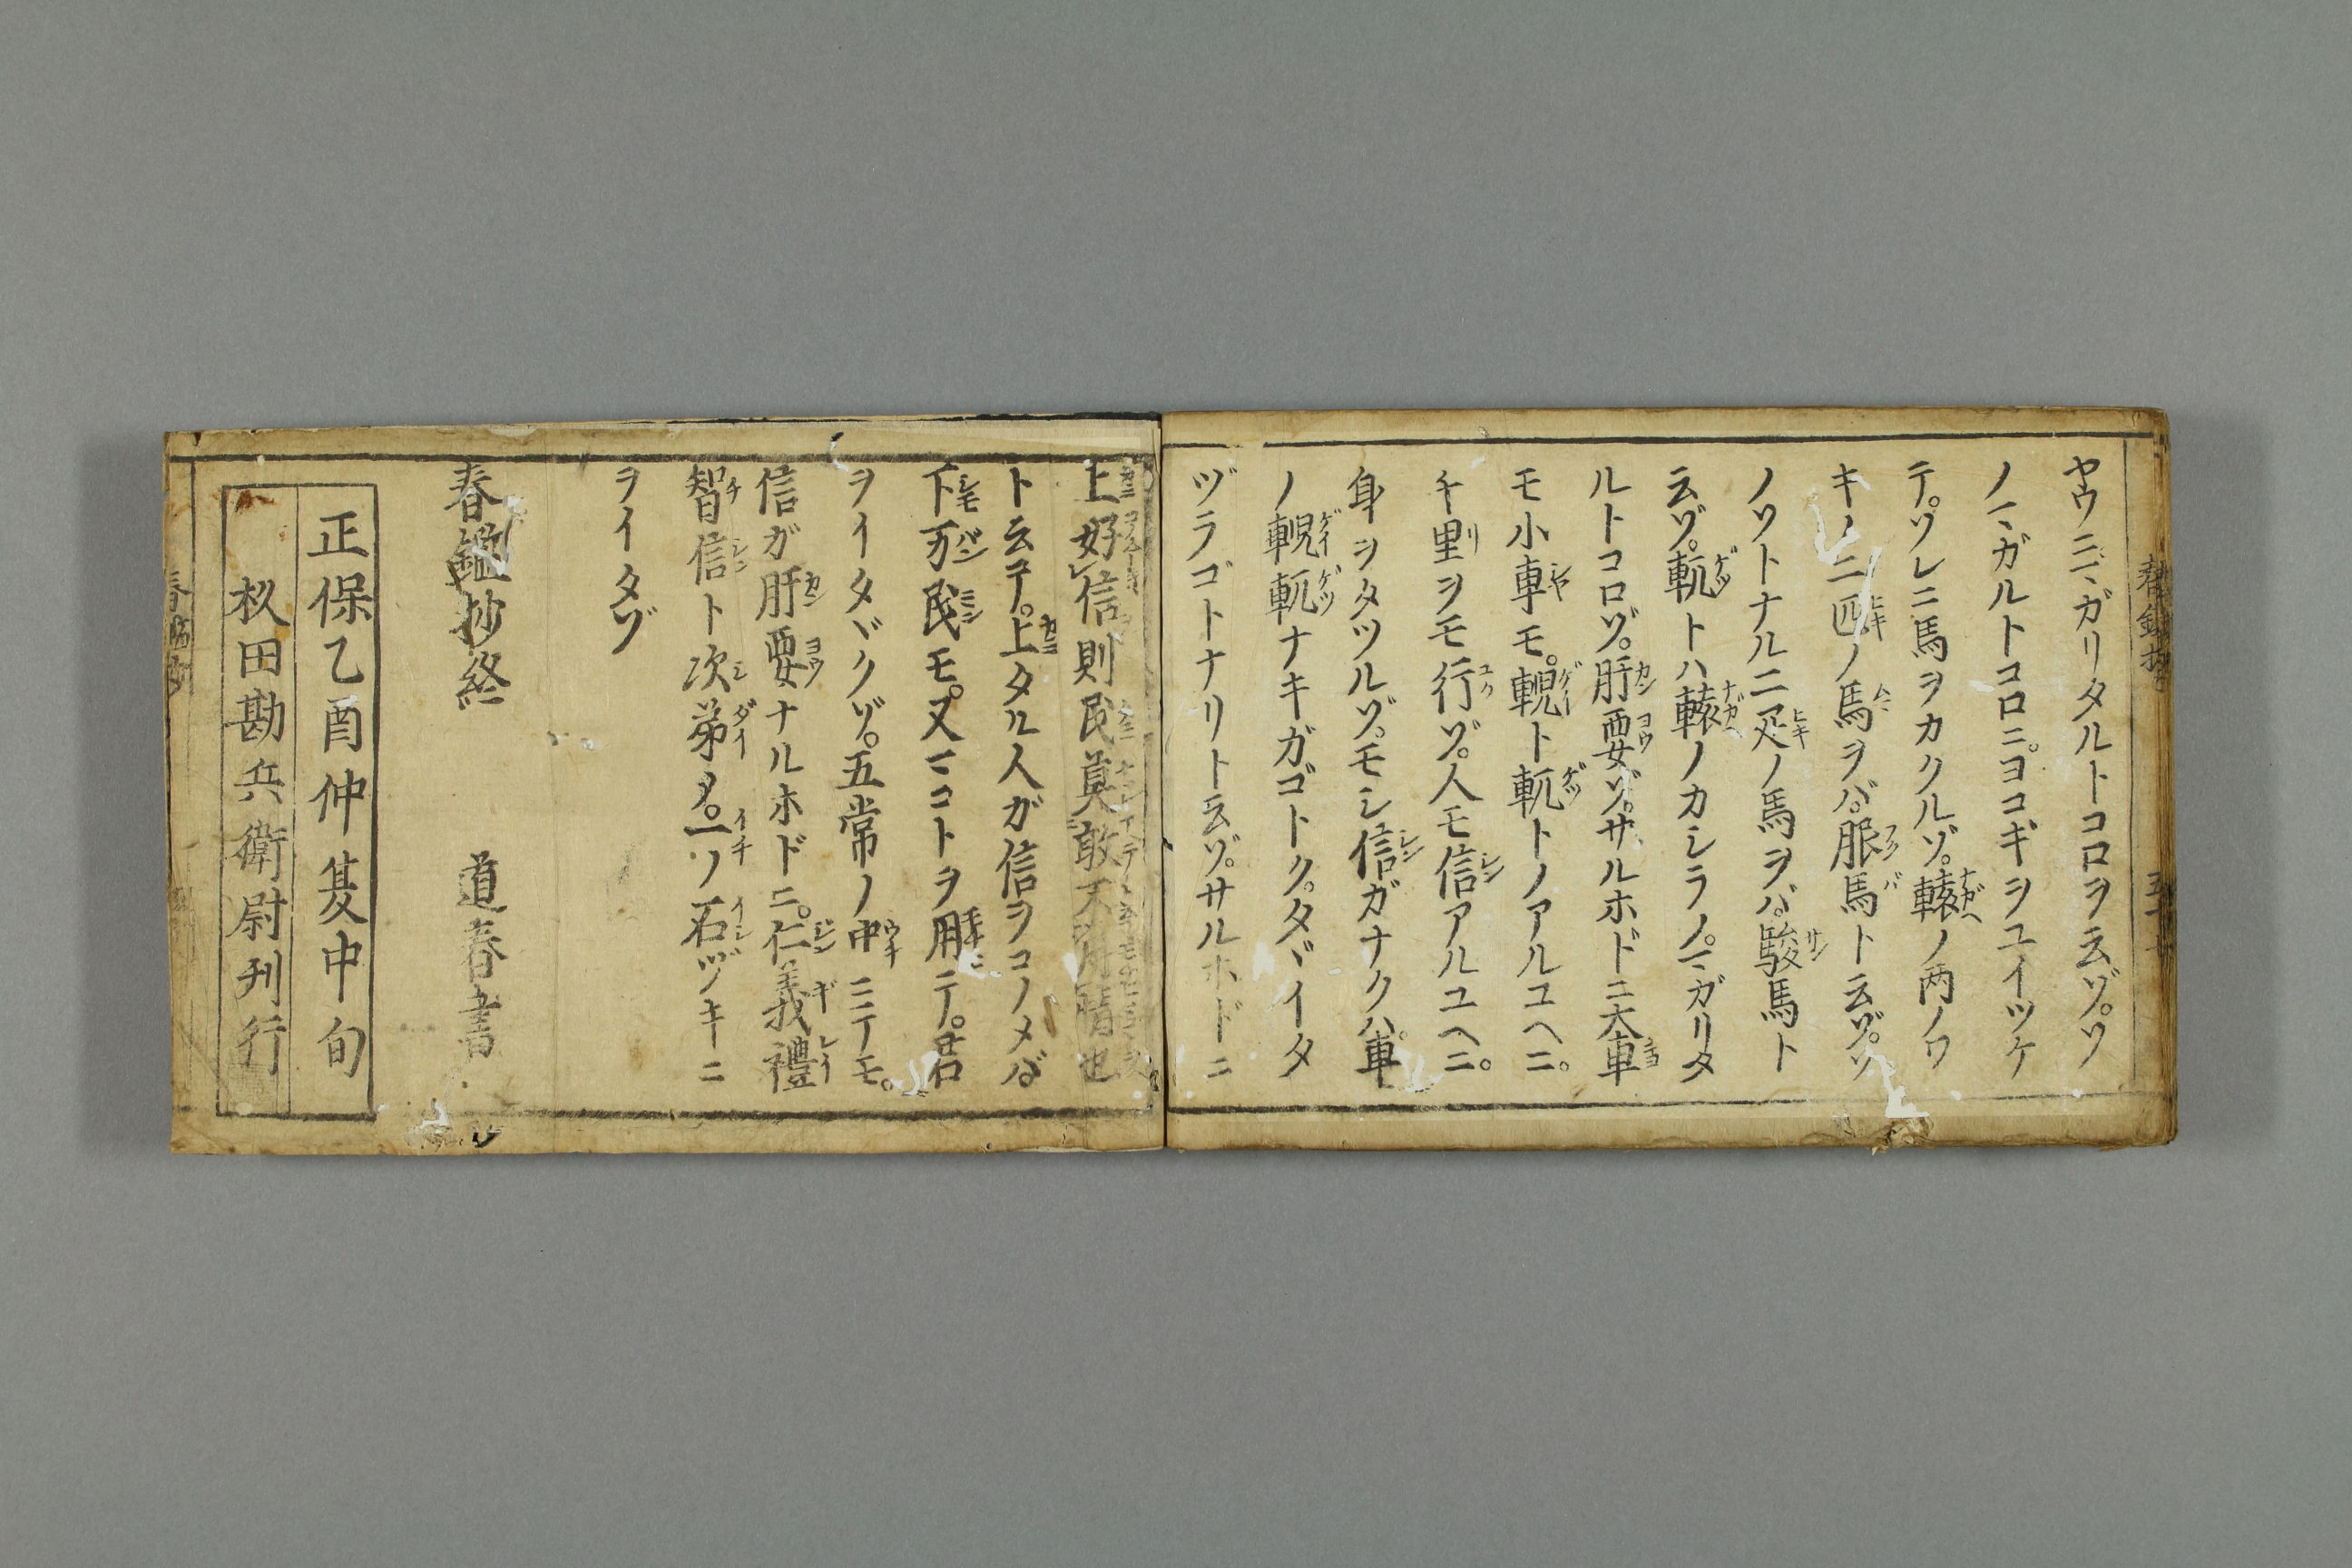 ヤウニマガリタルトコロヲ云ゾ。ソ
ノマガルトコロニ。ヨコギヲユイツケ
テ。ソレニ馬ヲカクルゾ。轅ノ両ノワ
キノ二匹ノ馬ヲバ。服馬ト云ゾ。ソ
ノソトナル二疋ノ馬ヲバ。駿馬ト
云ゾ。軏トハ轅ノカシラノ。マガリタ
ルトコロゾ。肝要ゾ。サルホドニ大車
モ小車モ。輗ト軏トノアルユヘニ。
千里ヲモ行ゾ。人モ信アルユヘニ。
身ヲタツルゾ。モシ信ガナクハ。車
ノ輗軏ナキガゴトク。タヾイタ
ヅラゴトナリト云ゾ。サルホドニ
上好信則民莫敢不用情也
ト云テ。上タル人ガ信ヲコノメバ
下万民モ。又マコトヲ用テ。君
ヲイタヾクゾ。五常ノ中ニテモ。
信ガ肝要ナルホドニ。仁義禮
智信ト次第タ。一ノ石ヅキニ
ヲイタゾ
春鑑抄終 道春書
正保乙酉仲夏中旬
杦田勘兵衛尉刊行